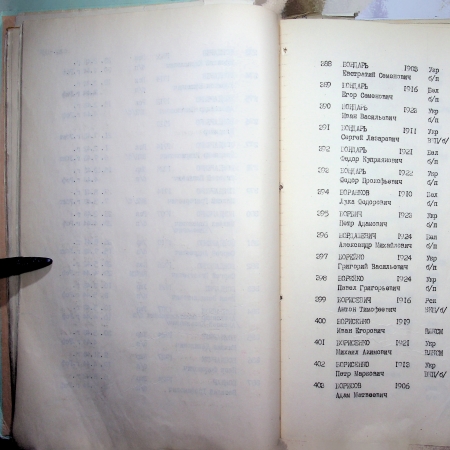 388 БОНДАРЬ 1903 Укр
Евстратий Семенович б/п
389 БОНДАРЬ 1916 Бел
Егор Семенович б/п
390 БОНДАРЬ Укр
Иван Васильевич б/п
391 БОНДАРЬ 1911 Укр
Сергей Лазаревич ВКП/б/
392 БОНДАРЬ 1921 Бел
Федор Куприянович б/п
393 БОНДАРЬ 1922 Укр
Федор Прокофьевич б/п
394 1910 Бел
Лука Федорович б/п
395 Укр
Петр Адамович б/п
396 1924 Бел
Александр Михайлович б/п
397 БОРЕЙКО 1924 Укр
Григорий Васильевич б/п
398 БОРЕЙКО 1924 Укр
Павел Григорьевич б/п
399 БОРИСЕВИЧ 1916
Антон Тимофеевич ВКП/б/
400 БОРИСЕНКО 1919
Иван Егорович ВЛКСМ
401 БОРИСЕНКО 1921 Укр
Михаил Акимович ВЛКСМ
402 БОРИСЕНКО Укр
Петр Маркович ВКП/б/
403 БОРИСОВ 1906
Адам Матвеевич